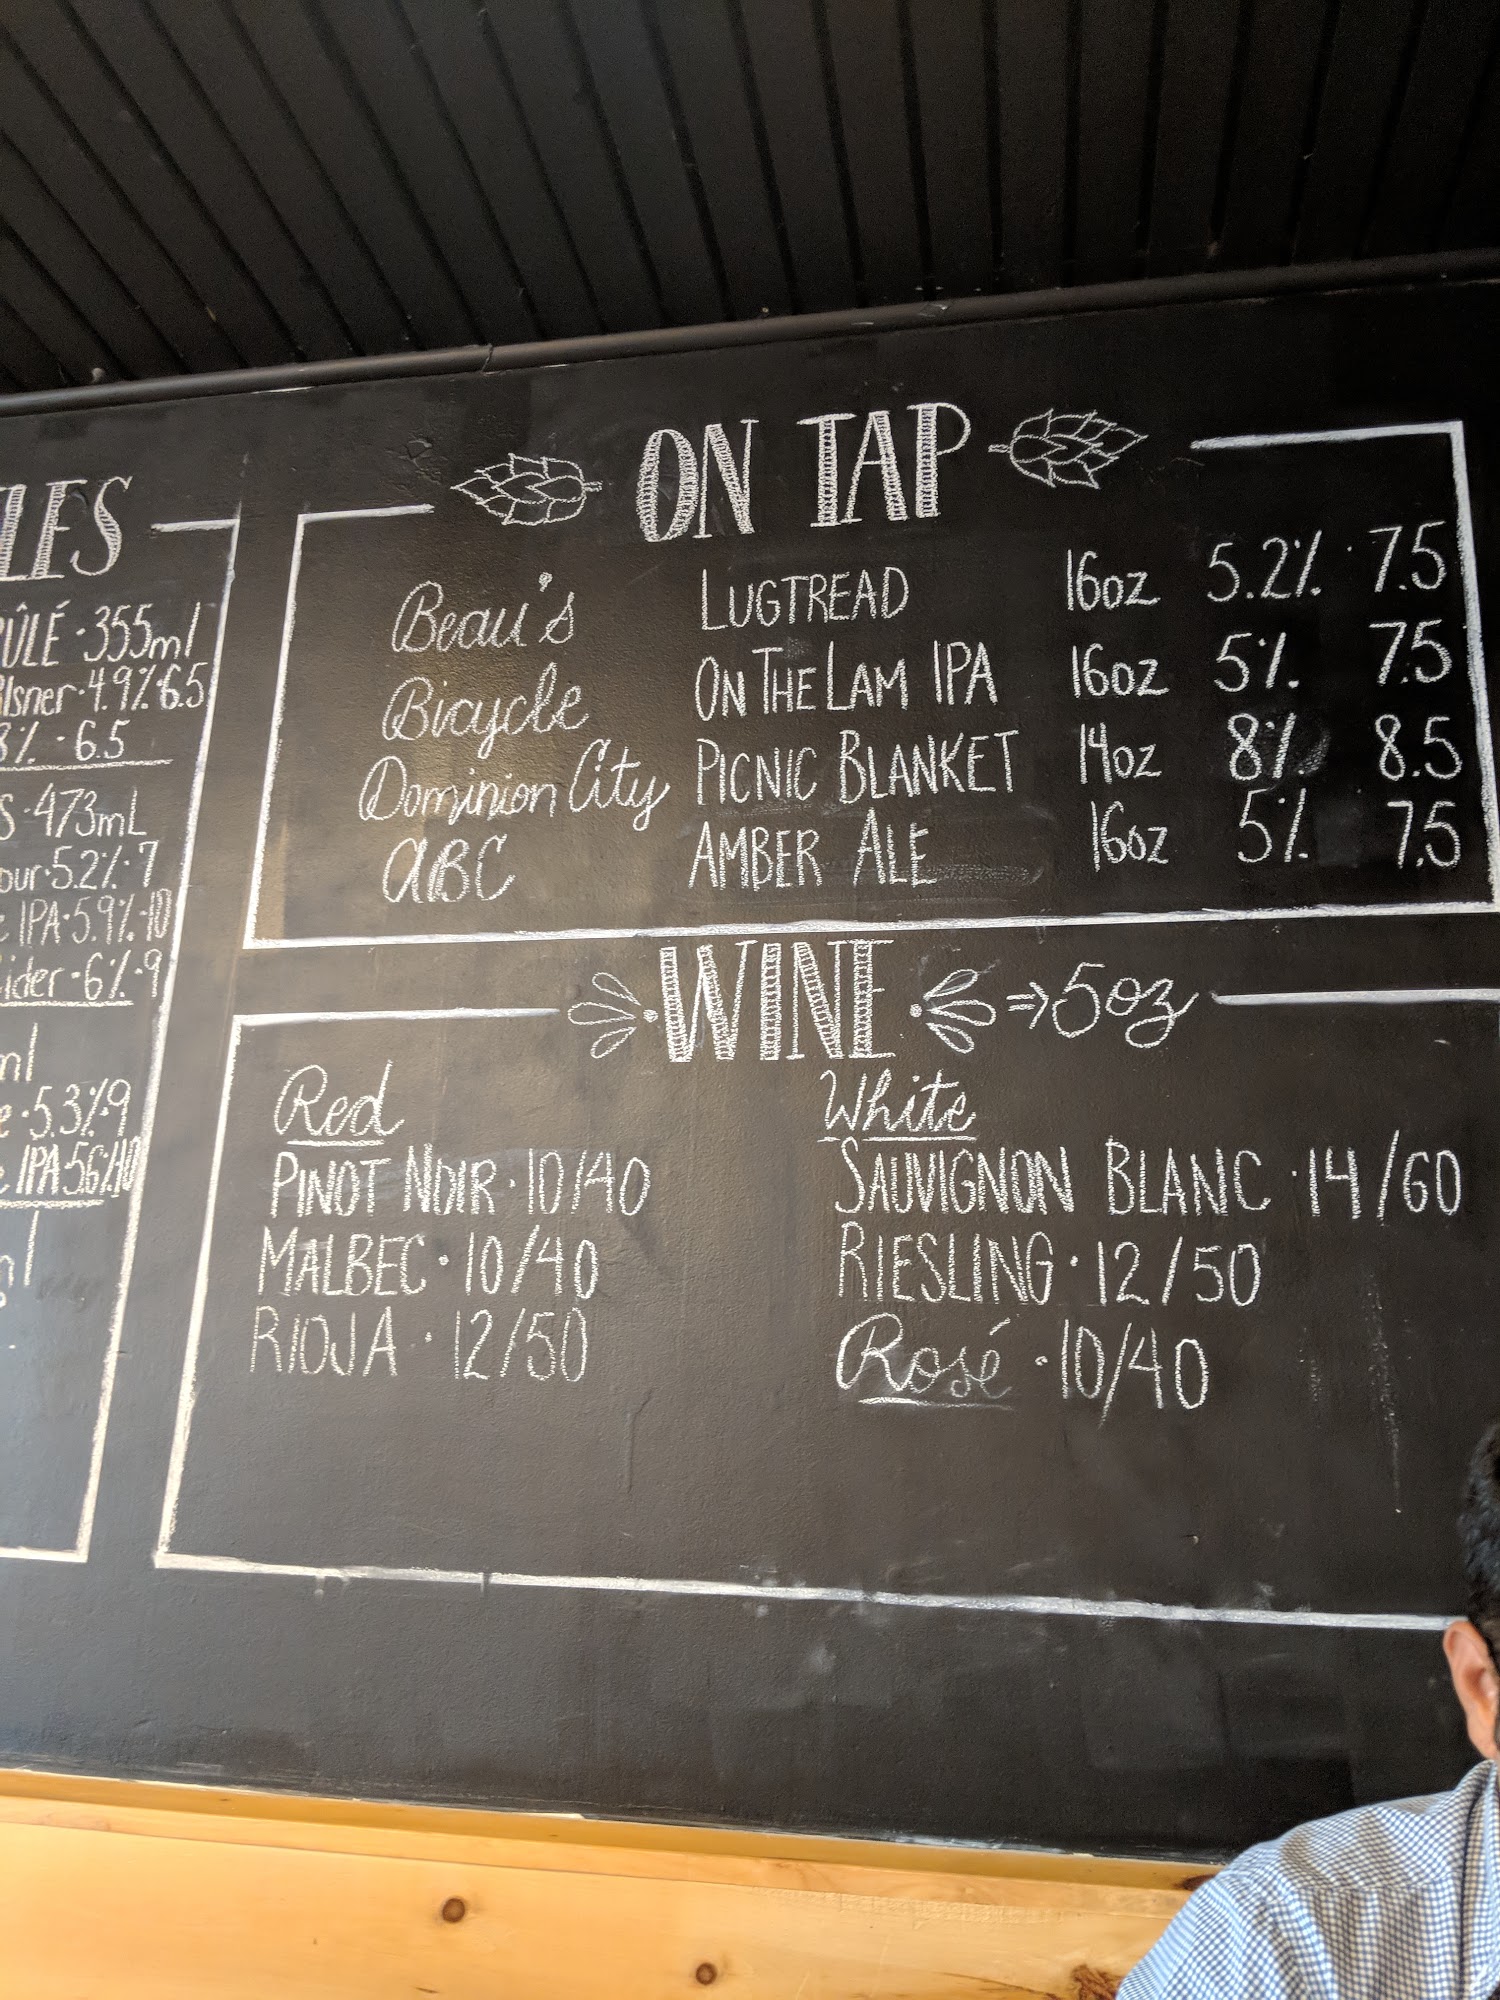 ON TAP
Beau's LUGTREAD 16oz 5.2% · 7.5
Bicycle ON THE LAM IPA 16oz 5% 7.5
Dominion City PICNIC BLANKET 14oz 8% 8.5
ABC AMBER ALE 16oz 5% 7.5
WINE ⇒ 5oz
Red
PINOT NOIR · 10/40
MALBEC · 10/40
RIOJA · 12/50
White
SAUVIGNON BLANC · 14/60
RIESLING · 12/50
Rosé · 10/40
· 355ml
· 4.9% · 6.5
· 6.5
· 473mL
· 5.2% · 7
IPA · 5.9% · 10
· 6% · 9
ml
· 5.3% 9
IPA 5.6% 10